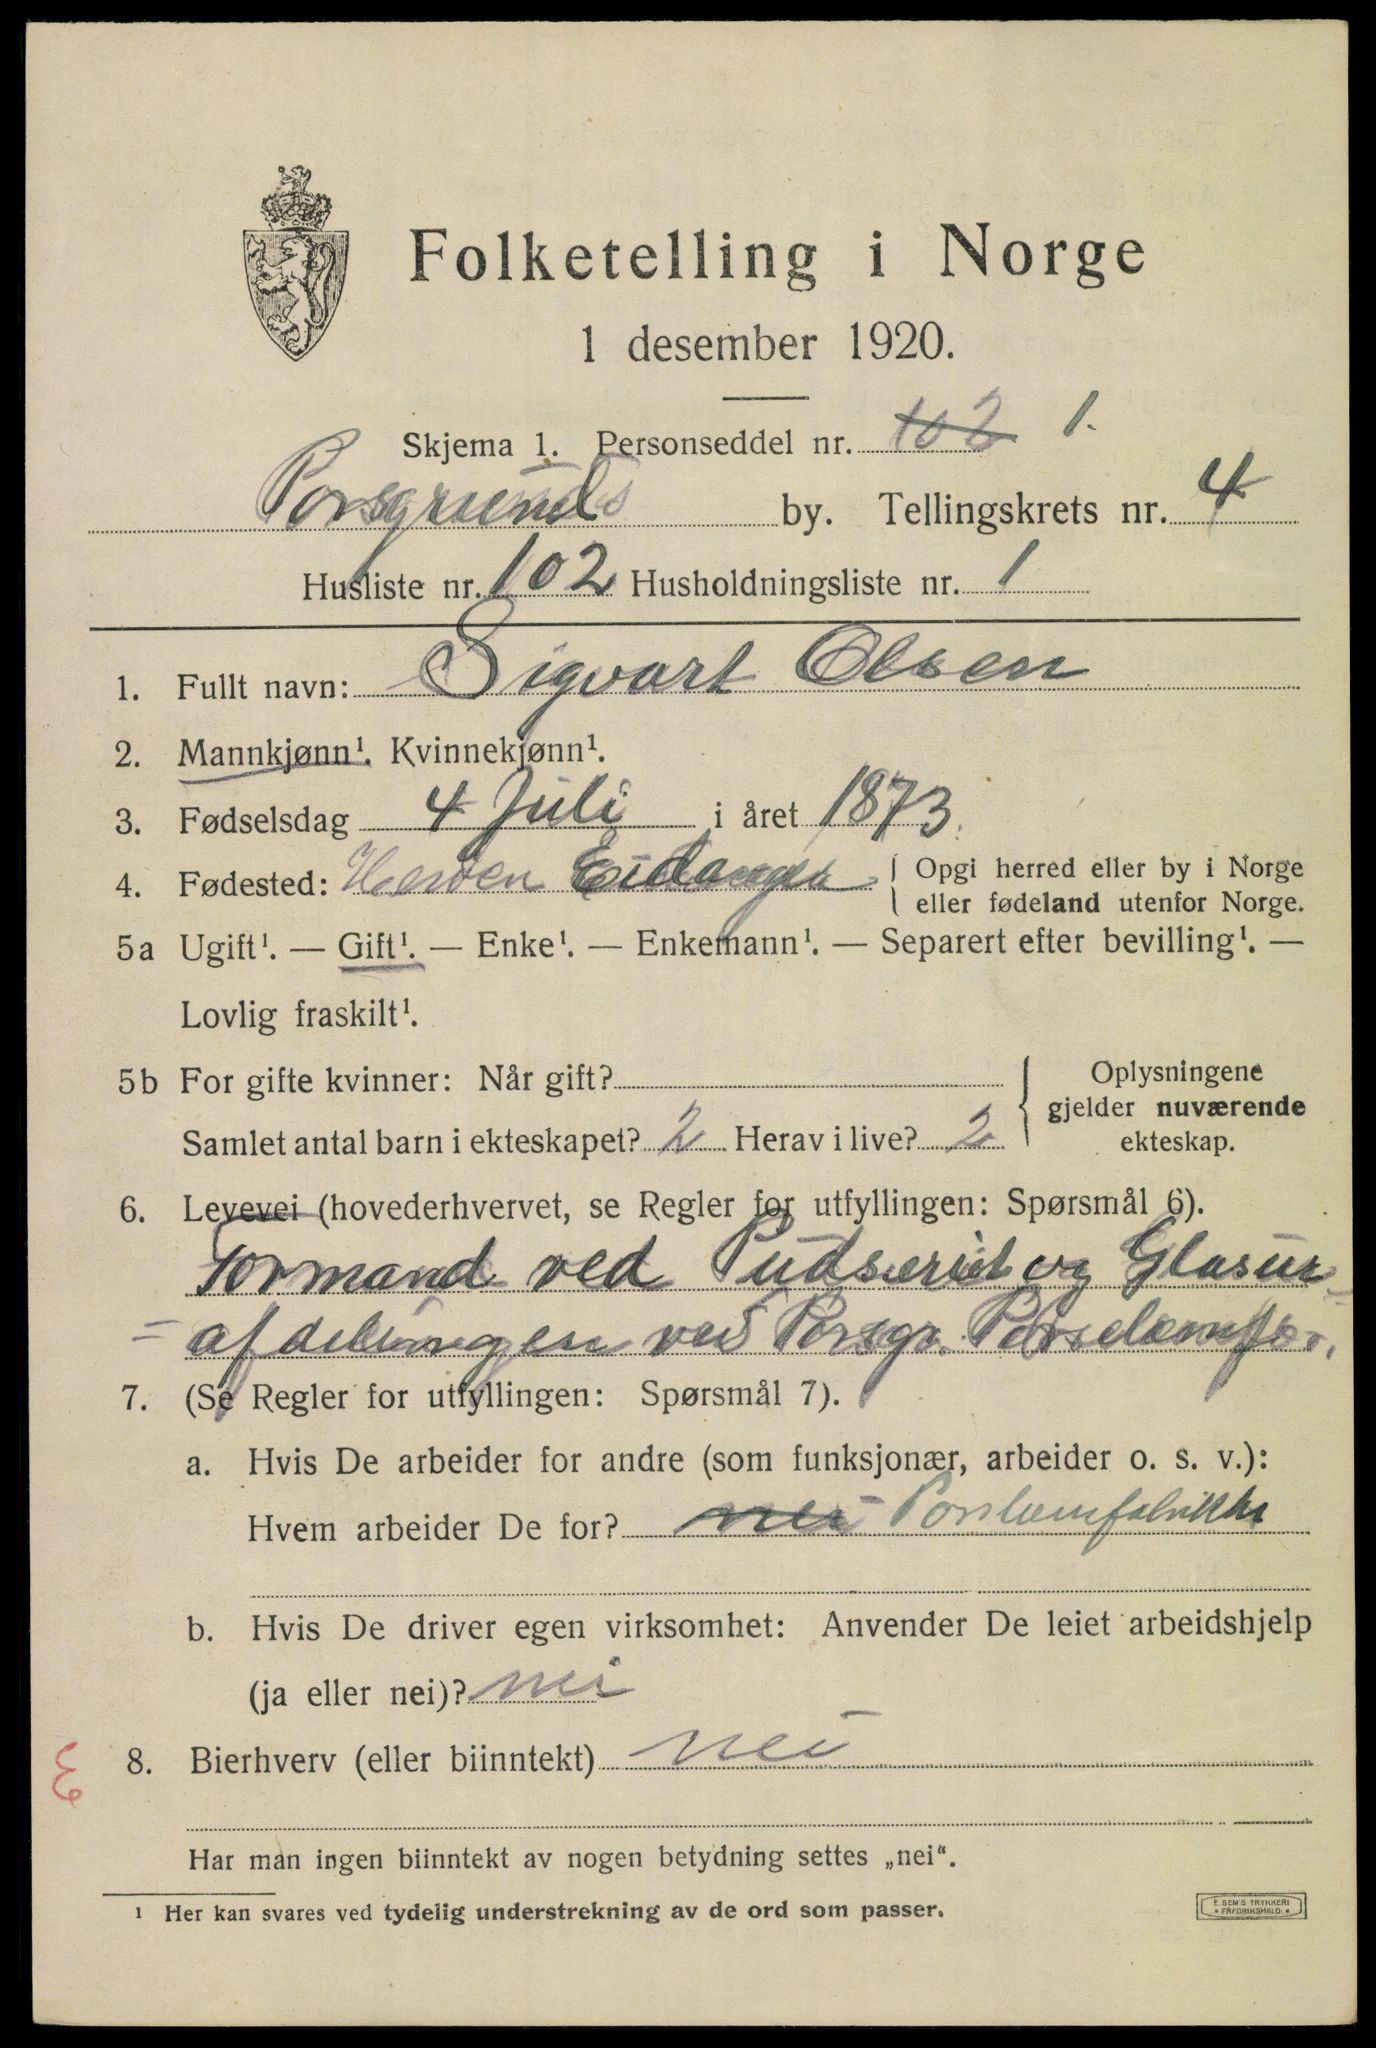 Folketelling i Norge
1 desember 1920.
Skjema 1. Personseddel nr. 102 1.
Porsgrunds by. Tellingskrets nr. 4
Husliste nr. 102 Husholdningsliste nr. 1
1. Fullt navn: Sigvart Olsen
2. Mannkjønn¹. Kvinnekjønn¹.
3. Fødselsdag 4 Juli i året 1873.
4. Fødested: Eidanger { Opgi herred eller by i Norge
eller fødeland utenfor Norge.
5a Ugift¹. — Gift¹. — Enke¹. — Enkemann¹. — Separert efter bevilling¹. —
Lovlig fraskilt¹.
5b For gifte kvinner: Når gift? { Oplysningene
gjelder nuværende
Samlet antal barn i ekteskapet? 2 Herav i live? 2 ekteskap.
6. Levevei (hovederhvervet, se Regler for utfyllingen: Spørsmål 6).
Formand ved Pudseriet og Glasur=
=afdelingen ved Porsgr. Porselænsfa.
7. (Se Regler for utfyllingen: Spørsmål 7).
a. Hvis De arbeider for andre (som funksjonær, arbeider o. s. v.):
Hvem arbeider De for? nei
b. Hvis De driver egen virksomhet: Anvender De leiet arbeidshjelp
(ja eller nei)? nei
8. Bierhverv (eller biinntekt) nei
Har man ingen biinntekt av nogen betydning settes „nei“.
¹ Her kan svares ved tydelig understrekning av de ord som passer.
E. SEM'S TRYKKERI
* FREDRIKSHALD *